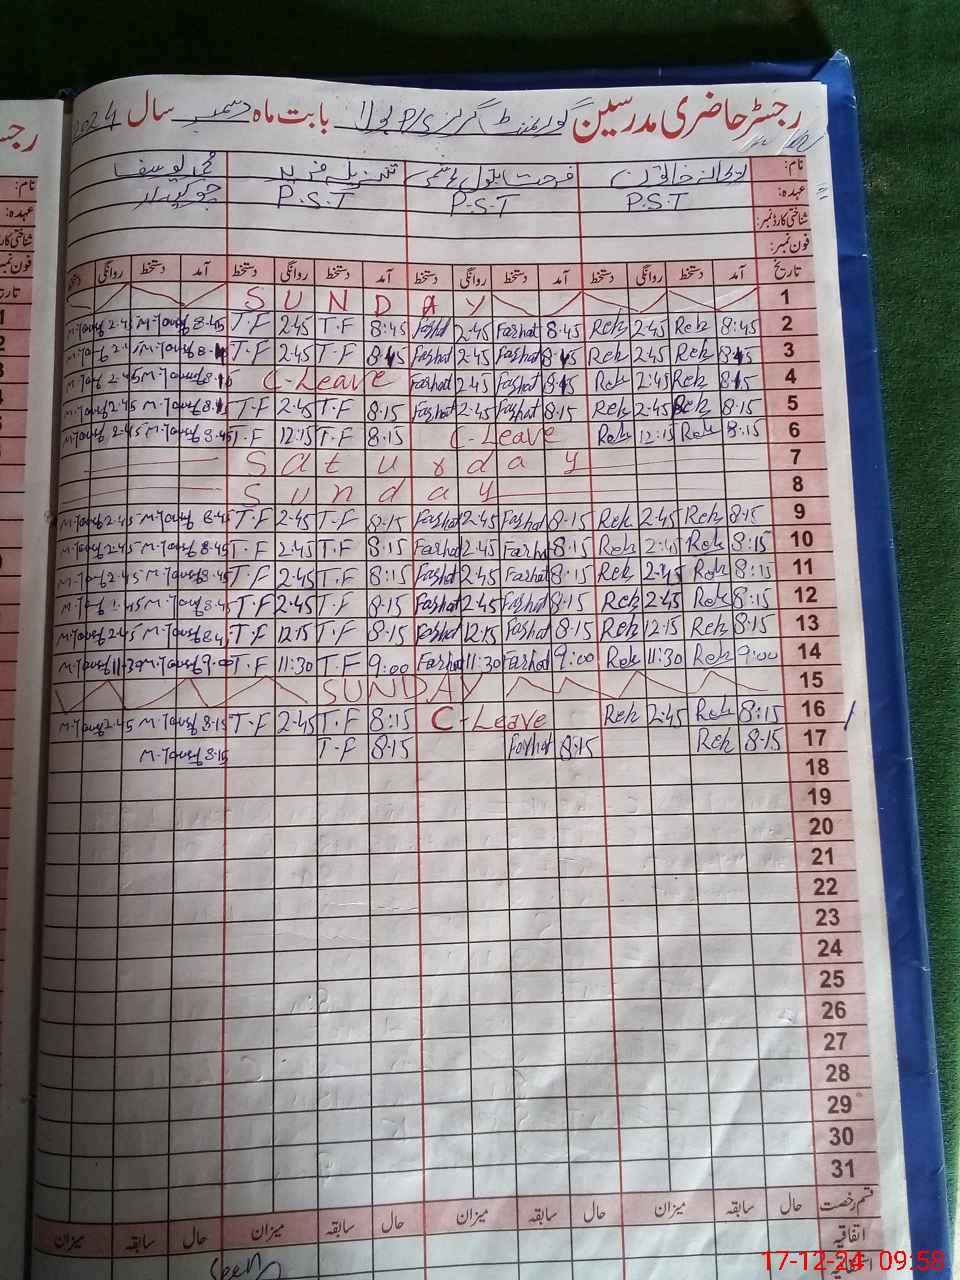 رجسٹر حاضری مدرسین گورنمنٹ گرلز P/S بابت ماہ دسمبر سال 2024
نام: ریحانہ خاتون فرحت بتول محمد یوسف
عہدہ: P.S.T P.S.T P.S.T چوکیدار
شناختی کارڈ نمبر:
فون نمبر:
تاریخ آمد دستخط روانگی دستخط آمد دستخط روانگی دستخط آمد دستخط روانگی دستخط آمد دستخط روانگی
1 SUNDAY
2 8:45 Reh 2:45 Reh 8:45 Farhat 2:45 Farhat 8:45 T.F 2:45 T.F 8:45 M.Yousf 2:45 M.Yousf
3 Reh 2:45 Reh Farhat 2:45 Farhat T.F 2:45 T.F M.Yousf 2:45
4 8:15 Reh 2:45 Reh 8:15 Farhat 2:45 Farhat C-Leave 8:15 M.Yousf 2:45
5 8:15 Reh 2:45 Reh 8:15 Farhat 2:45 Farhat 8:15 T.F 2:45 T.F M.Yousf 2:45 M.Yousf
6 8:15 Reh 12:15 Reh C-Leave 8:15 T.F 12:15 T.F 8:45 M.Yousf 2:45 M.Yousf
7 Saturday
8 Sunday
9 8:15 Reh 2:45 Reh 8:15 Farhat 2:45 Farhat 8:15 T.F 2:45 T.F 8:45 M.Yousf 2:45 M.Yousf
10 8:15 Reh 2:45 Reh 8:15 Farhat 2:45 Farhat 8:15 T.F 2:45 T.F 8:45 M.Yousf 2:45 M.Yousf
11 8:15 Reh 2:45 Reh 8:15 Farhat 2:45 Farhat 8:15 T.F 2:45 T.F 8:45 M.Yousf 2:45
12 8:15 Reh 2:45 Reh 8:15 Farhat 2:45 Farhat 8:15 T.F 2:45 T.F 8:45 M.Yousf
13 8:15 Reh 12:15 Reh 8:15 Farhat 12:15 Farhat 8:15 T.F 12:15 T.F M.Yousf 2:45 M.Yousf
14 9:00 Reh 11:30 Reh 9:00 Farhat 11:30 Farhat 9:00 T.F 11:30 T.F 9:00 M.Yousf 11:30 M.Yousf
15 SUNDAY
16 8:15 Reh 2:45 Reh C-Leave 8:15 T.F 2:45 T.F 8:15 M.Yousf 2:45 M.Yousf
17 8:15 Reh 8:15 Farhat 8:15 T.F 8:15 M.Yousf
18
19
20
21
22
23
24
25
26
27
28
29
30
31
قسم رخصت حال سابقہ میزان حال سابقہ میزان حال سابقہ میزان حال سابقہ میزان
اتفاقیہ
17-12-24 09:58